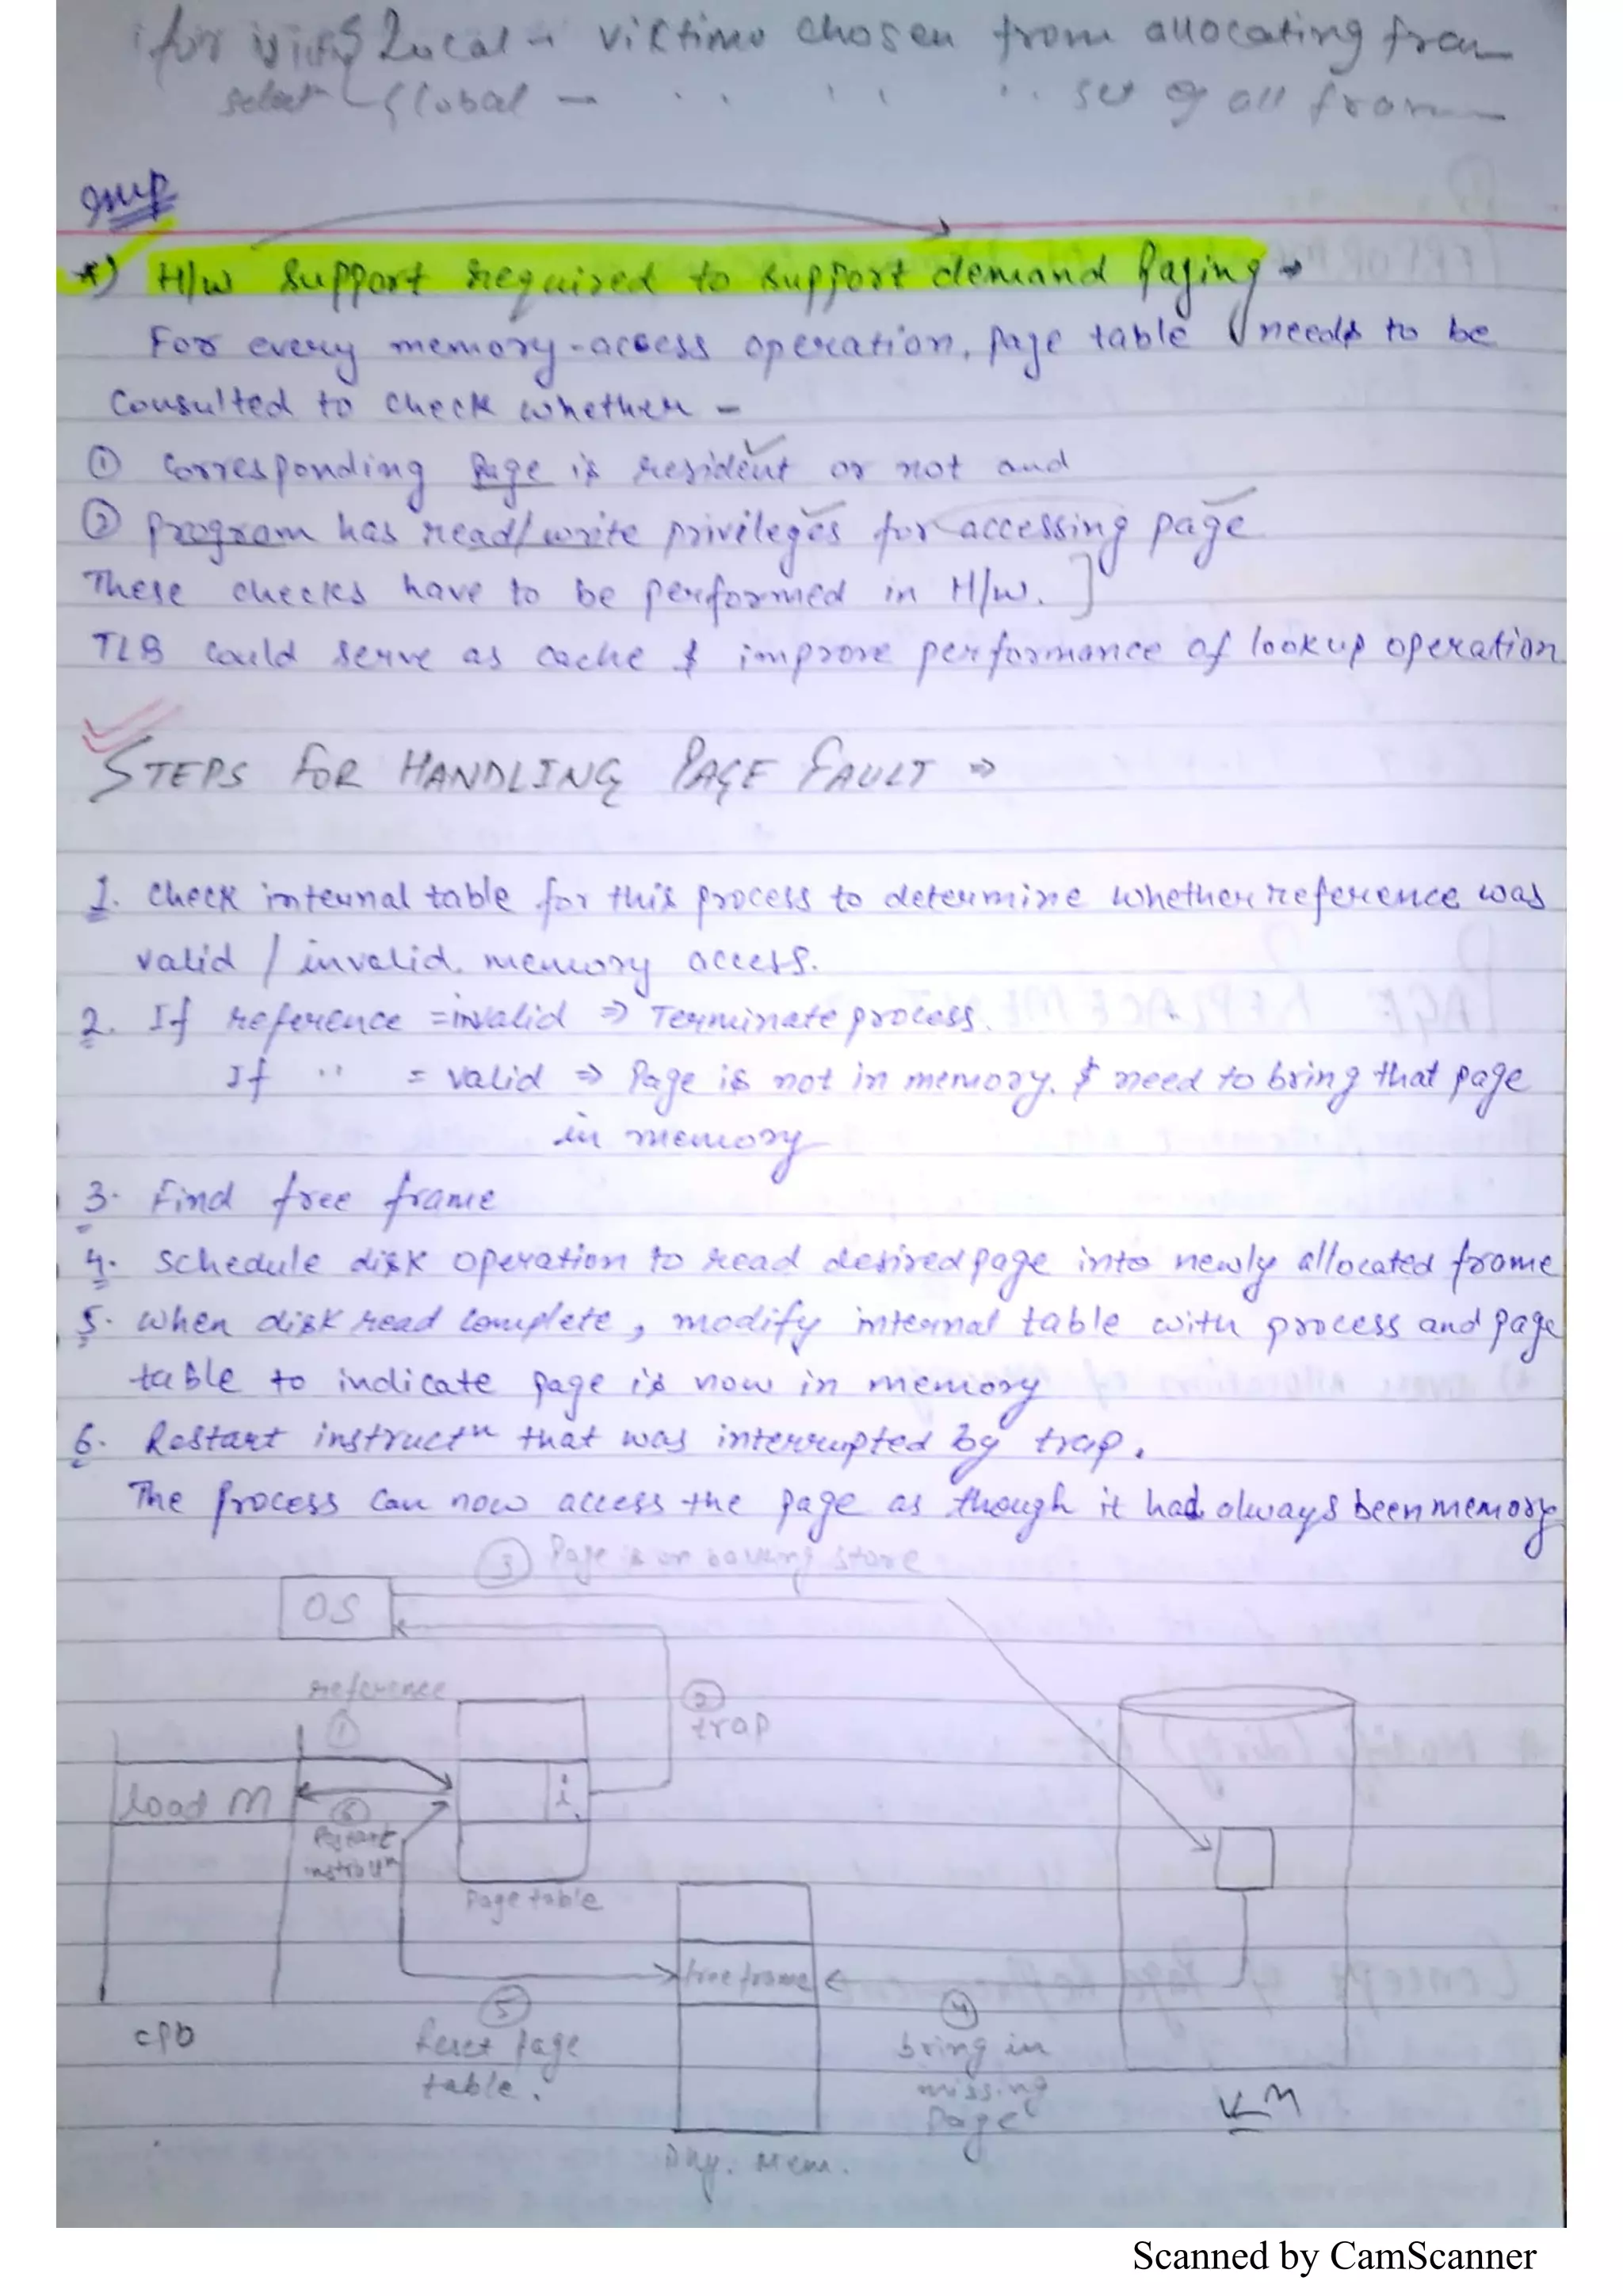 for Local → victims chosen from allocating fram
select Global — " " " set of all fram
Imp
*) H/w support required to support demand Paging →
For every memory-access operation, page table needs to be
consulted to check whether -
① corresponding page is resident or not and
② program has read/write privileges for accessing page
These checks have to be performed in H/w. ]
TLB could serve as cache & improve performance of lookup operation
STEPS FOR HANDLING PAGE FAULT ⇒
1. Check internal table for this process to determine whether reference was
valid / invalid. memory access.
2. If reference = invalid ⇒ Terminate process.
If " = valid ⇒ Page is not in memory. & need to bring that page
in memory
3. Find free frame
4. Schedule disk operation to read desired page into newly allocated frame
5. when disk read complete, modify internal table with process and page
table to indicate page is now in memory
6. Restart instructⁿ that was interrupted by trap.
The process can now access the page as though it had always been memory
③ Page is on backing store
OS
reference
①
② trap
load M
i
⑥
Restart
instrucⁿ
Page table
free frame
⑤
④
CPU
Reset page
table.
bring in
missing
page
VM
Phy. Mem.
Scanned by CamScanner